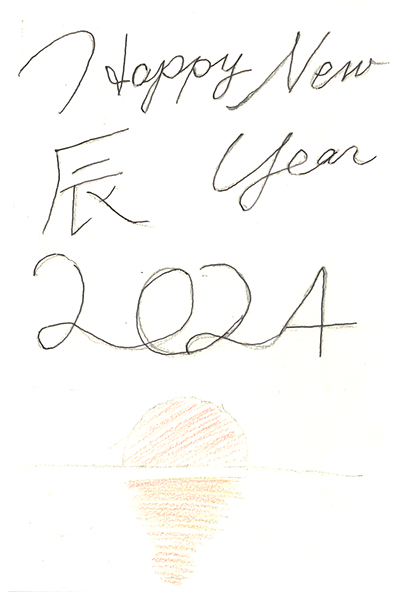 Happy New
辰 Year
2024